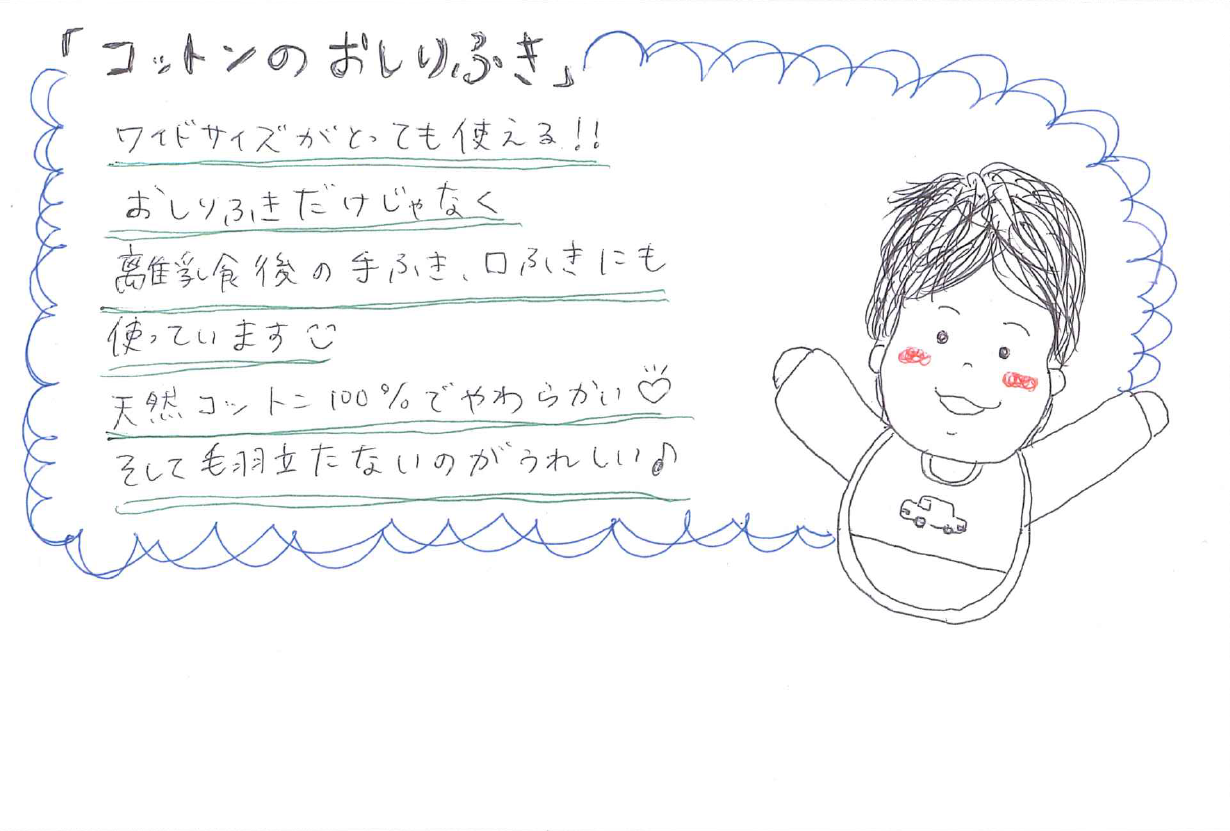 「コットンのおしりふき」
ワイドサイズがとっても使える!!
おしりふきだけじゃなく
離乳食後の手ふき、口ふきにも
使っています
天然コットン100%でやわらかい♡
そして毛羽立たないのがうれしい♪